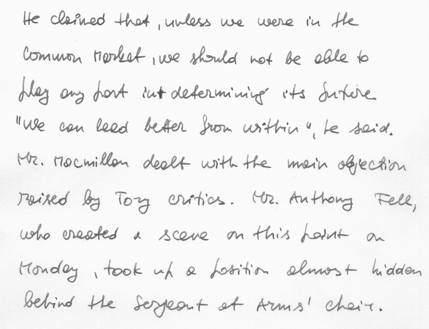 He claimed that, unless we were in the
Common Market, we should not be able to
play any part in determining its future.
"We can lead better from within", he said.
Mr. Macmillan dealt with the main objection
raised by Tory critics. Mr. Anthony Fell,
who created a scene on this point on
Monday, took up a position almost hidden
behind the Sergeant at Arms' chair.